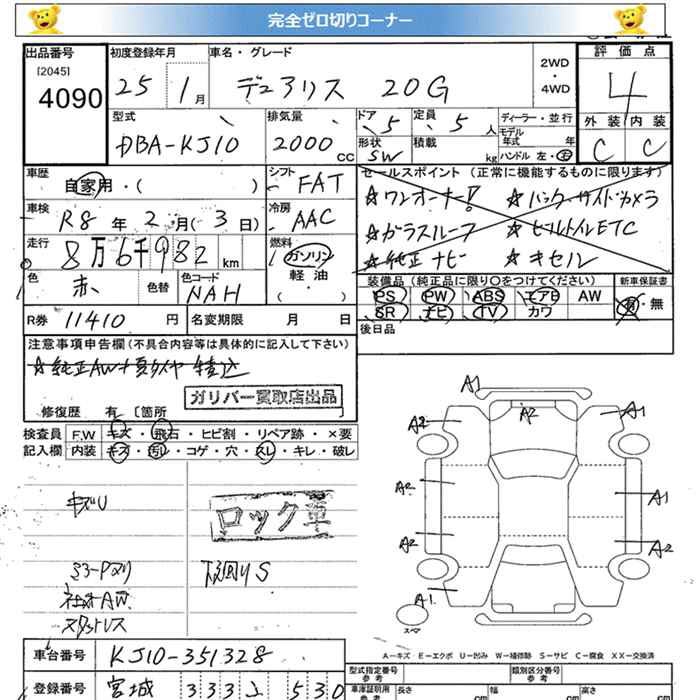 完全ゼロ切りコーナー
出品番号
[2045]
4090
初度登録年月
25 1月
車名・グレード
デュアリス 20G
2WD
・
4WD
評価点
4
外装 内装
C C
型式
DBA-KJ10
排気量
2000 CC
ドア 5
形状 SW
定員 5 人
積載 kg
ディーラー・並行
モデル
年式 年
ハンドル 左・右
車歴
自家用・( )
シフト
FAT
セールスポイント (正常に機能するものに限ります)
☆ワンオーナー! ☆バック・サイドカメラ
☆ガラスルーフ ☆ビルトインETC
☆純正ナビ ☆キセル
車検
R8年 2月( 3日)
冷房
AAC
走行
8万6千982 km
燃料
ガソリン
軽油
( ・ )
色
赤
色替
色コード
NAH
装備品(純正品に限り○をつけてください)
PS PW ABS エアB AW
SR ナビ TV カワ
新車保証書
有・無
R券 11410 円
名変期限 月 日
後日品
注意事項申告欄(不具合内容等は具体的に記入して下さい)
☆純正AW+夏タイヤ 積込
ガリバー買取店出品
修復歴 有 [箇所 ]
検査員 F.W キズ・飛石・ヒビ割・リペア跡・×要
記入欄 内装 キズ・汚レ・コゲ・穴・スレ・キレ・破レ
キズU
ロック車
ミラーPヌリ
下廻りS
社外AW
スタットレス
A1
A2 A2 A1
A2 A1
A2 A2
A1
スペア
A-キズ E-エクボ U-凹み W-補修跡 S-サビ C-腐食 XX-交換済
車台番号 KJ10-351328
型式指定番号
参考
類別区分番号
参考
登録番号 宮城 333 530
車庫証明用
参考
長さ cm
幅 cm
高さ cm